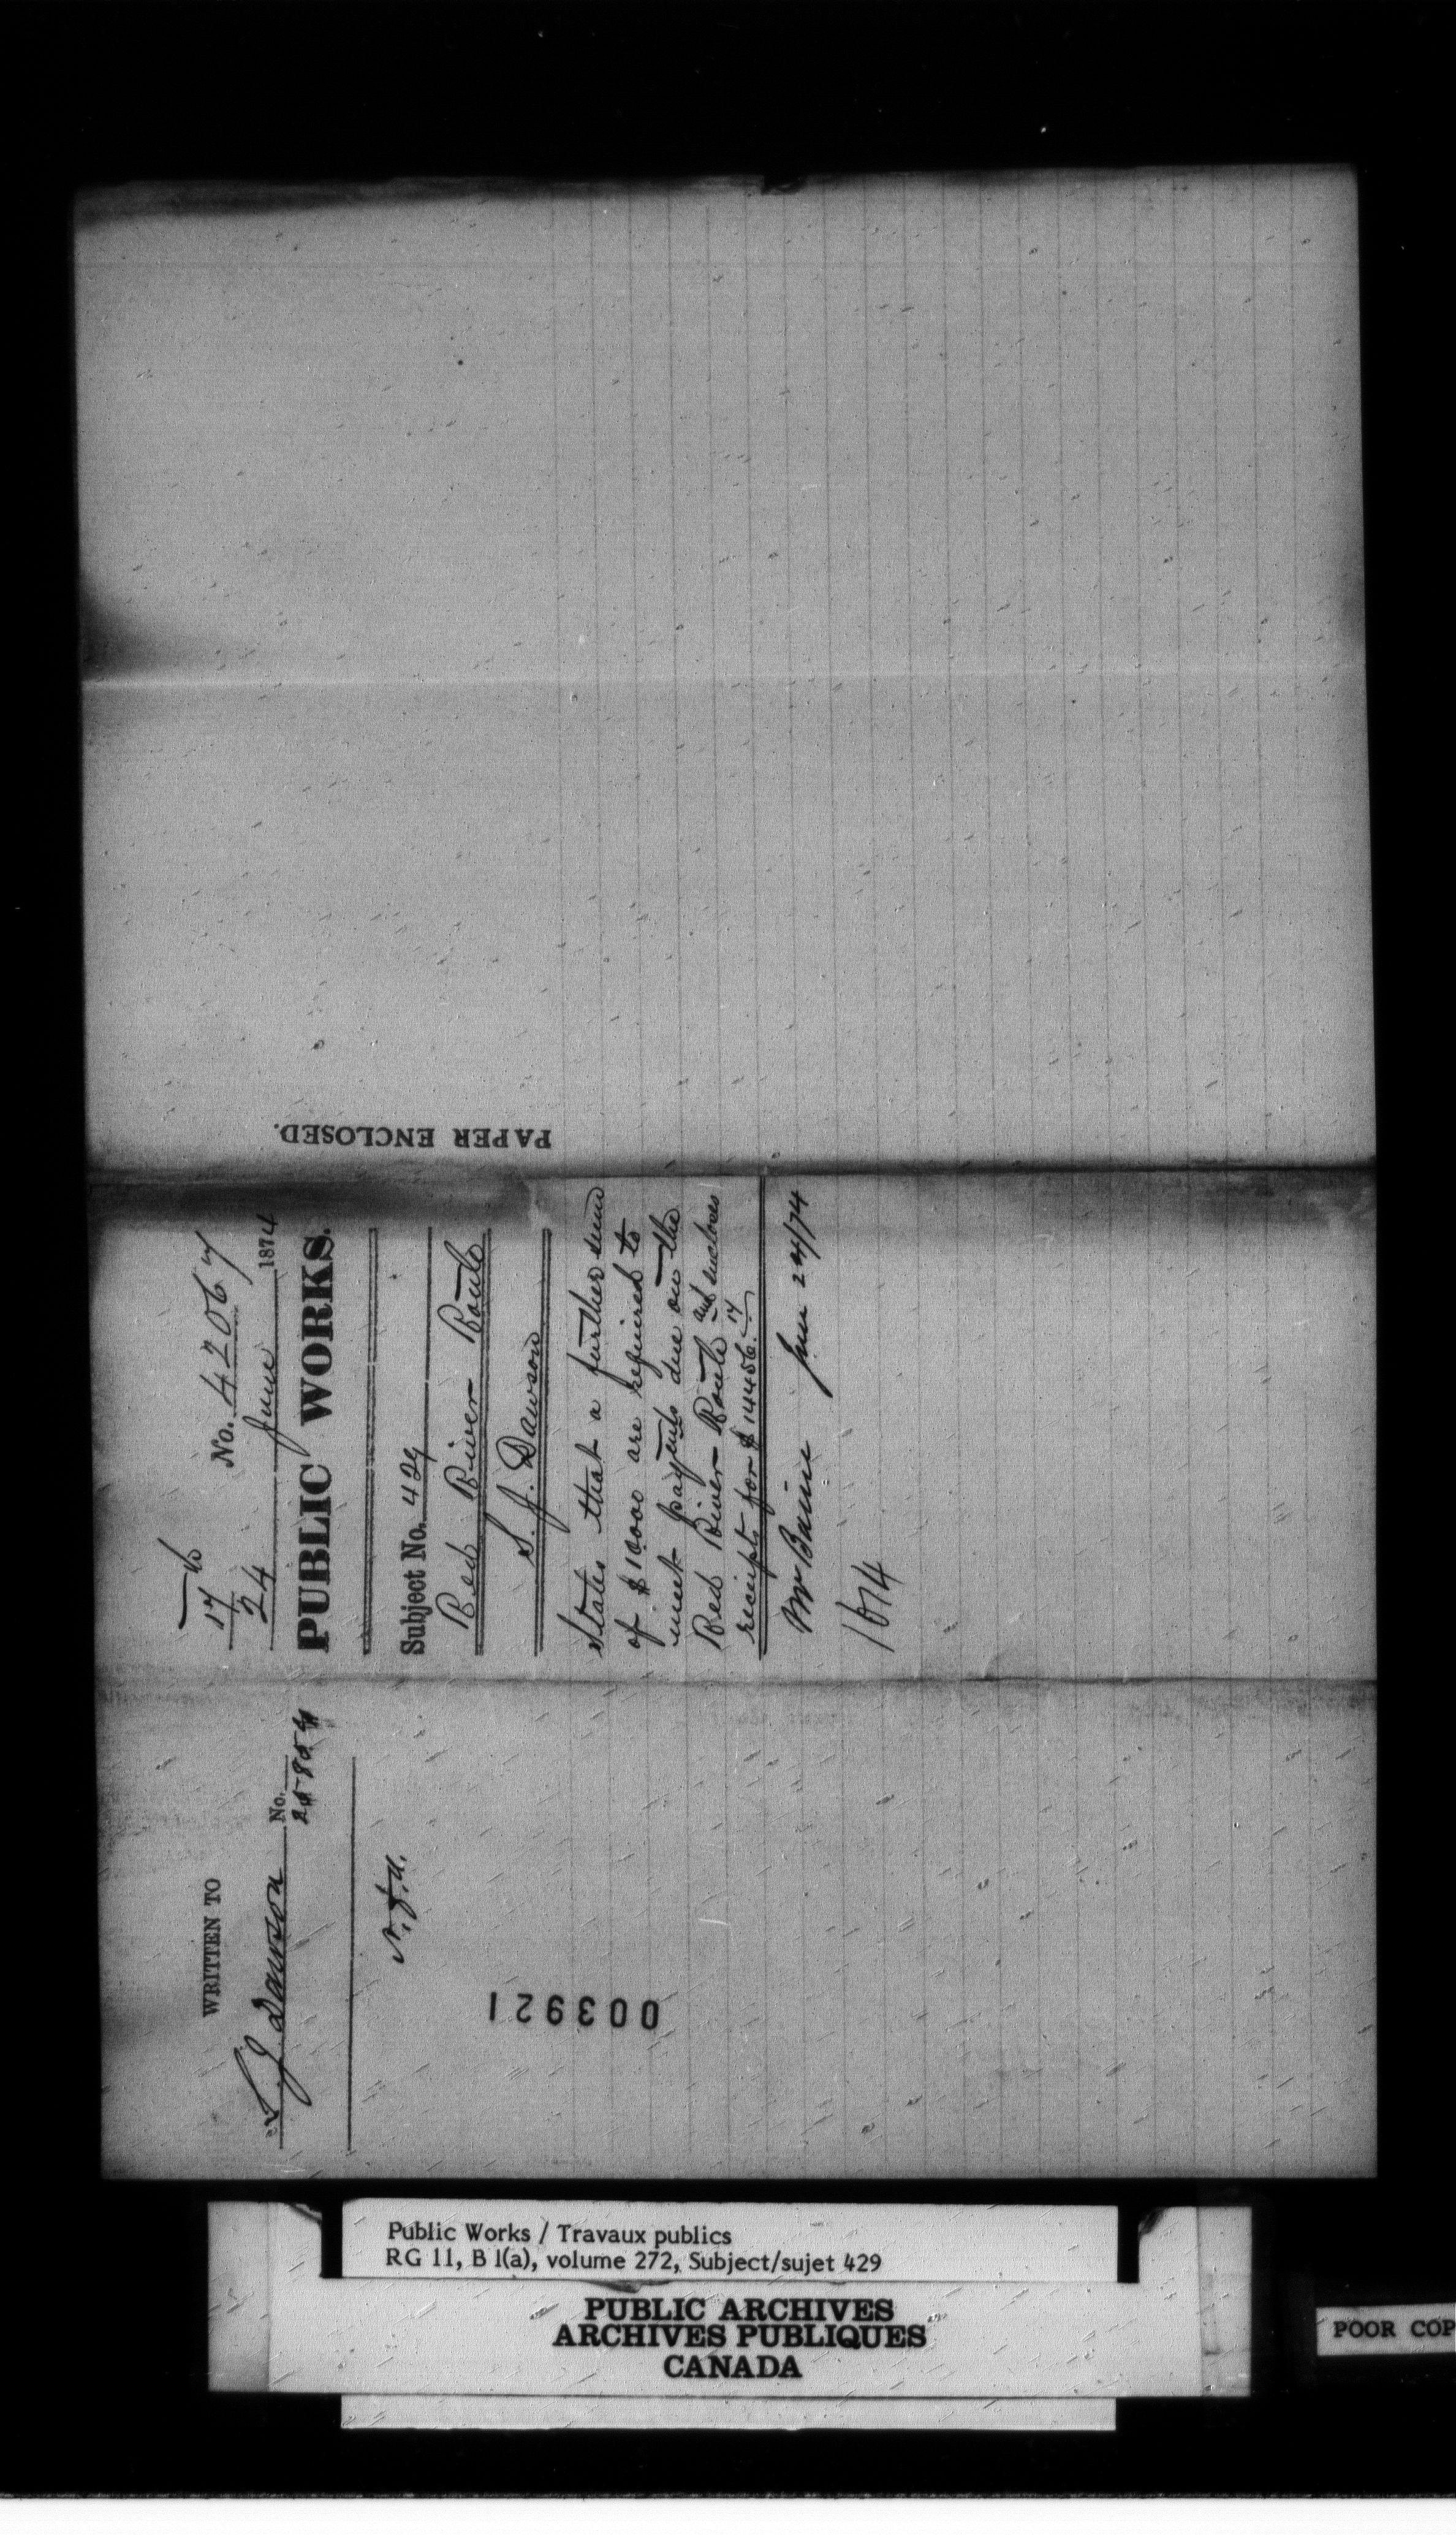 No. 42067
17
24 June 1874
PUBLIC WORKS.
Subject No. 429
Red River Route
S. J. Dawson
States that a further sum
of $10000 are required to
meet payments due on the
Red River Route and encloses
receipts for $14456.17
Mr Baine June 24/74
1674
PAPER ENCLOSED.
WRITTEN TO
S. J. Dawson No.
003921
Public Works / Travaux publics
RG 11, B 1(a), volume 272, Subject/sujet 429
PUBLIC ARCHIVES
ARCHIVES PUBLIQUES
CANADA
POOR COP